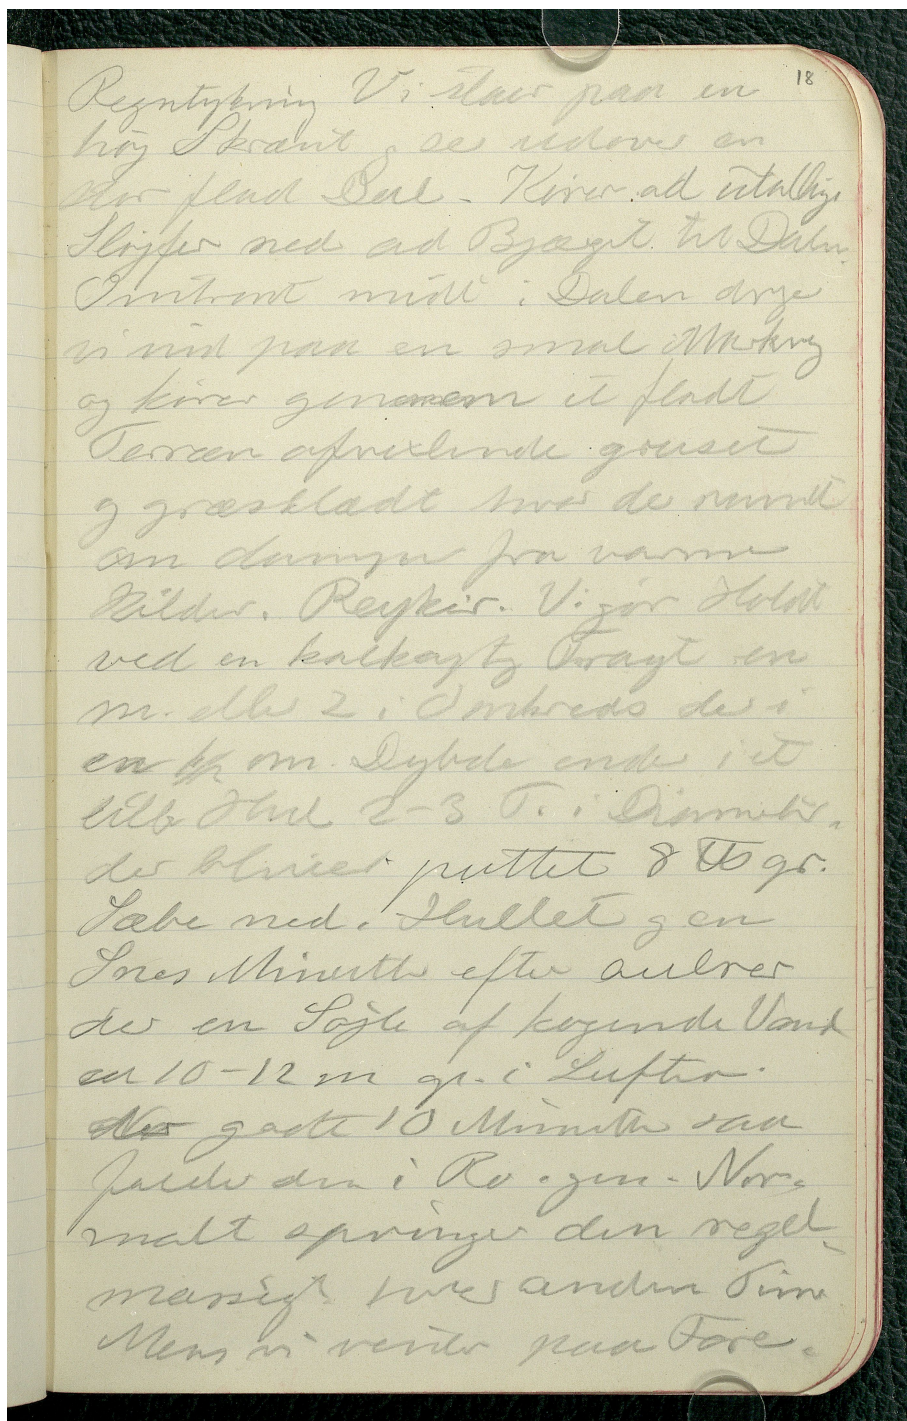 18
Regntykning Vi staar paa en
høj Skrænt, ser udover en
stor flad Dal - Kører ad utallige
Sløjfer ned ad Bjærget til Dalen.
Omtrent midt i Dalen dreje
vi ind paa en smal Markvej
og kører gennem et fladt
Terræn afvexlende gruset
og græsklædt hvor de rundt
om damper fra varme
Kilder. Reykir. Vi gør Holdt
ved en kalkagtig Tragt en
m. eller 2 i Omkreds der i
en ½ m. Dybde ender i et
lille Hul 2-3 T. i Diameter.
der bliver puttet 8 gr.
Sæbe ned i Hullet og en
Snes Minutter efter
der en Søjle af kogende Vand
10-12 m i Luften.
godt 10 Minutter saa
falder den i Ro igen. Nor-
malt springer den regel-
mæssigt hver anden Time
Mens vi venter paa Fore-